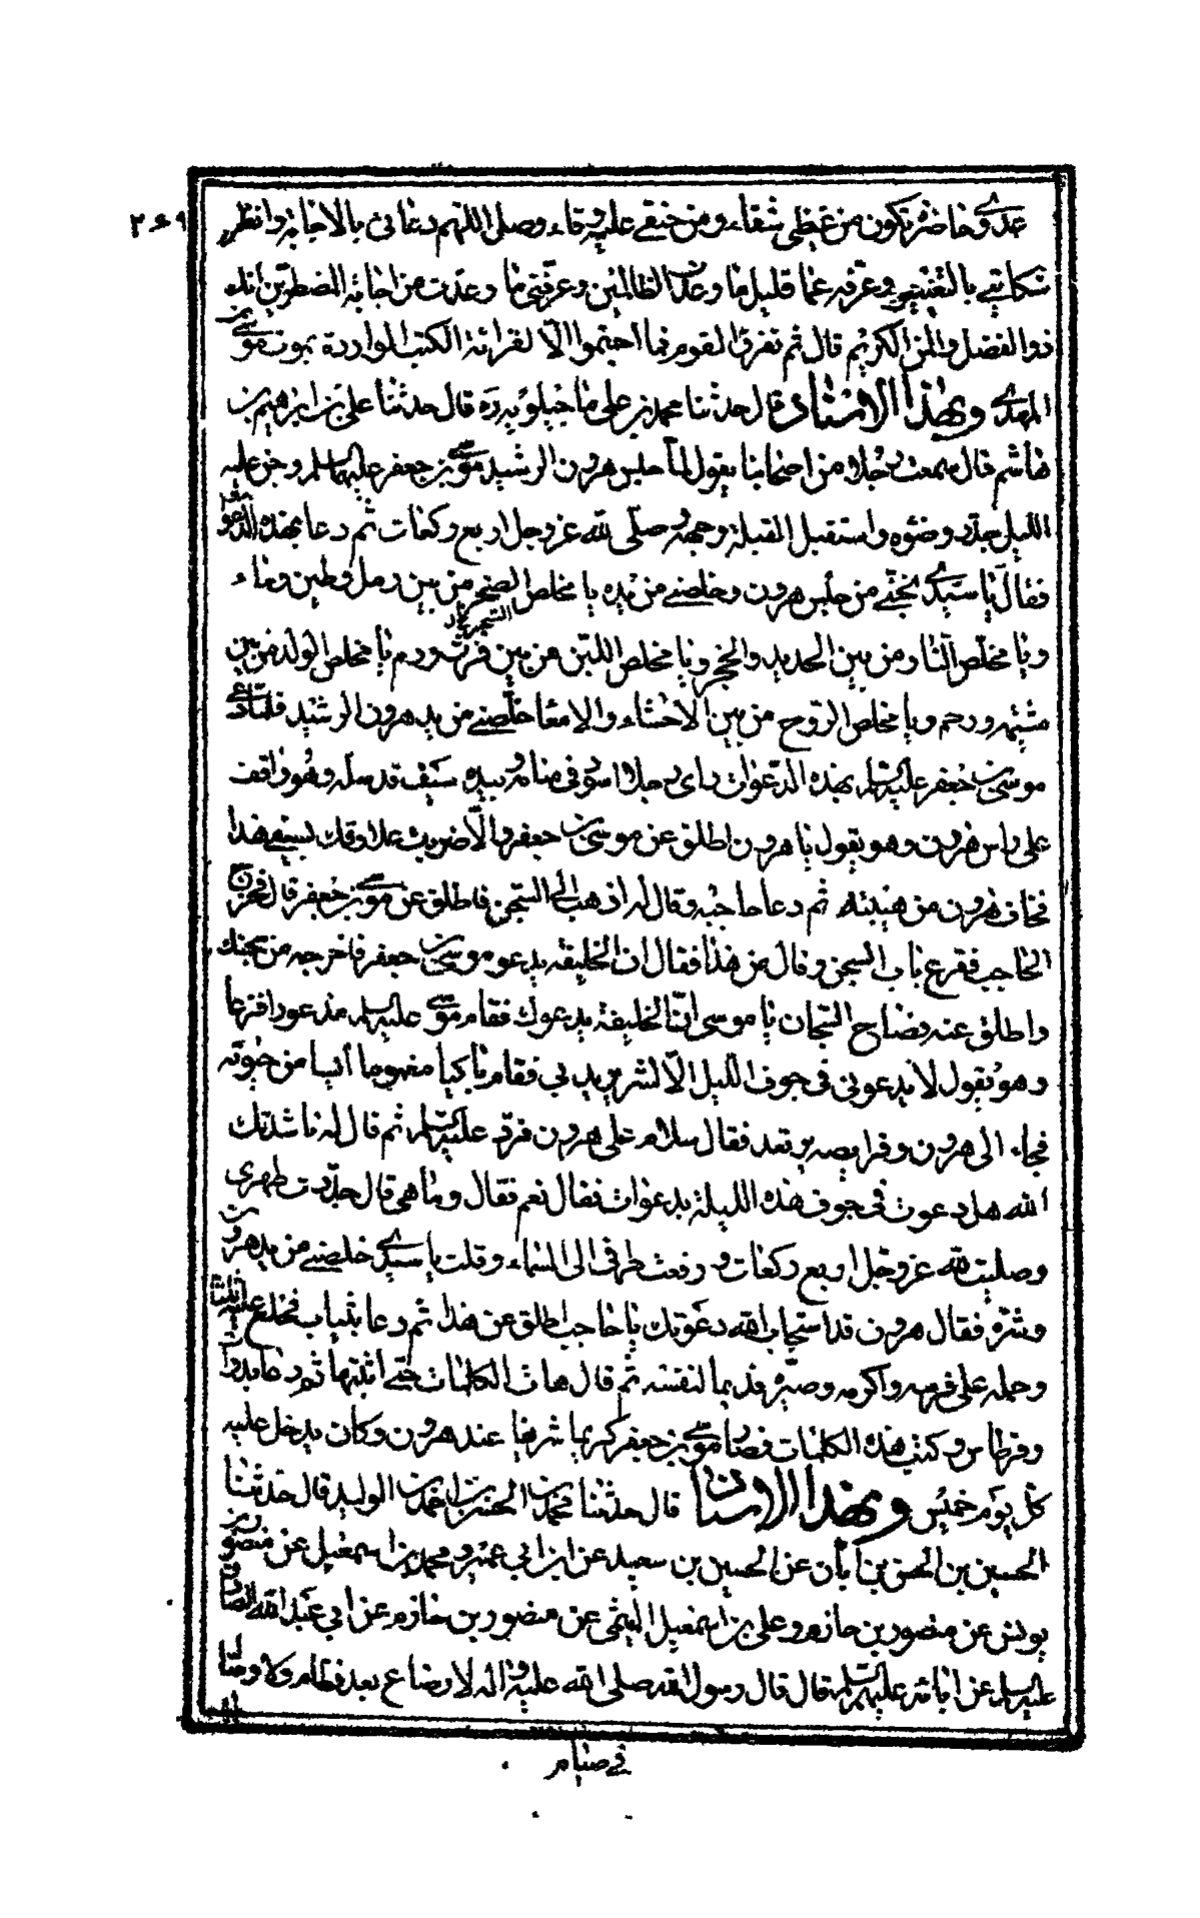 ۲۶۹
عدوي حاضرة تكون من غيظي شفاء ومن حنقي عليه وقاء وصل اللهم دعائي بالاجابة وانظر
شكايتي بالتغيير وعرفه عما قليل ما وعدت الظالمين وعرفني ما وعدت من اجابة المضطرين انك
ذو الفضل والمن الكريم قال ثم تفرق القوم فما اجتمعوا الا لقرائة الكتب الواردة بموت موسى
المهدي وبهذا الاسناد قال حدثنا محمد بن علي ماجيلويه ره قال حدثنا علي بن ابرهيم بن
هاشم قال سمعت رجلا من اصحابنا يقول لما حبس هرون الرشيد موسى بن جعفر عليهما السلم وجن عليه
الليل جدد وضوءه واستقبل القبلة بوجهه وصلى لله عز وجل اربع ركعات ثم دعا بهذه الدعوات
فقال يا سيدي نجني من حبس هرون وخلصني من يده يا مخلص الشجر من بين رمل وطين وماء
ويا مخلص النار من بين الحديد والحجر ويا مخلص اللبن من بين فرث ودم يا مخلص الولد من بين
مشيمه ورحم ويا مخلص الروح من بين الاحشاء والامعا خلصني من يد هرون الرشيد فلما دعى
موسى بن جعفر عليه السلم بهذه الدعوات راى رجلا اسود في منامه وبيده سيف قد سله وهو واقف
على راس هرون وهو يقول يا هرون اطلق عن موسى بن جعفر والا ضربت علاوتك بسيفي هذا
فخاف هرون من هيبته ثم دعا حاجبه وقال له اذهب الى السجن فاطلق عن موسى بن جعفر قال فخرج
الحاجب فقرع باب السجن وقال من هذا فقال ان الخليفة يدعو موسى بن جعفر فاخرجه من سجنك
واطلق عنه فصاح السجان يا موسى ان الخليفة يدعوك فقام موسى عليه السلم مذعورا فزعا
وهو يقول لا يدعوني في جوف الليل الا لشر يريد بي فقام باكيا مغموما آيسا من حيوته
فجاء الى هرون وفرايصه يرتعد فقال سلام على هرون فرد عليه السلم ثم قال له ناشدتك
الله هل دعوت في جوف هذه الليلة بدعوات فقال نعم فقال وما هي قال جددت طهرى
وصليت لله عز وجل اربع ركعات ورفعت طرفي الى السماء وقلت يا سيدي خلصني من يد هرون
وشره فقال هرون قد استجاب الله دعوتك يا حاجب اطلق عن هذا ثم دعا بثياب فخلع عليه ثلثا
وحمله على فرسه واكرمه وصيره نديما لنفسه ثم قال هات الكلمات حتى اثبتها ثم دعا بدواة
وقرطاس وكتب هذه الكلمات فصار موسى بن جعفر كريما شريفا عند هرون وكان يدخل عليه
كل يوم خميس وبهذا الاسناد قال حدثنا محمد بن الحسن بن احمد بن الوليد قال حدثنا
الحسين بن الحسن بن ابان عن الحسين بن سعيد عن ابن ابي عمير ومحمد بن اسمعيل عن منصور بن
يونس عن منصور بن حازم وعلي بن اسمعيل الميثمي عن منصور بن حازم عن ابي عبد الله الصادق
عليه السلم عن ابائه عليهم السلم قال قال رسول الله صلى الله عليه وآله لا رضاع بعد فطام ولا وصال
في صيام